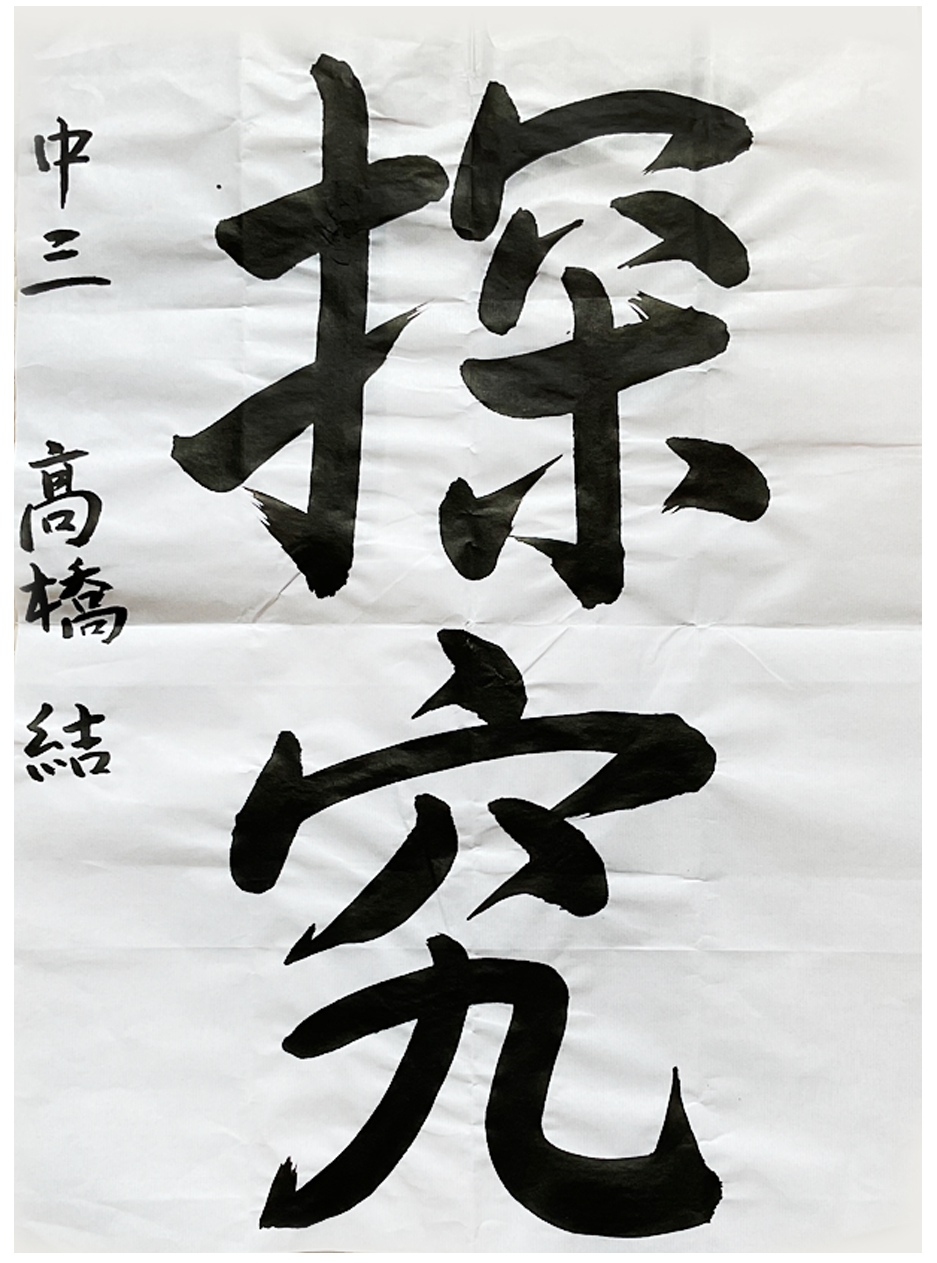 探究
中三 高橋 結